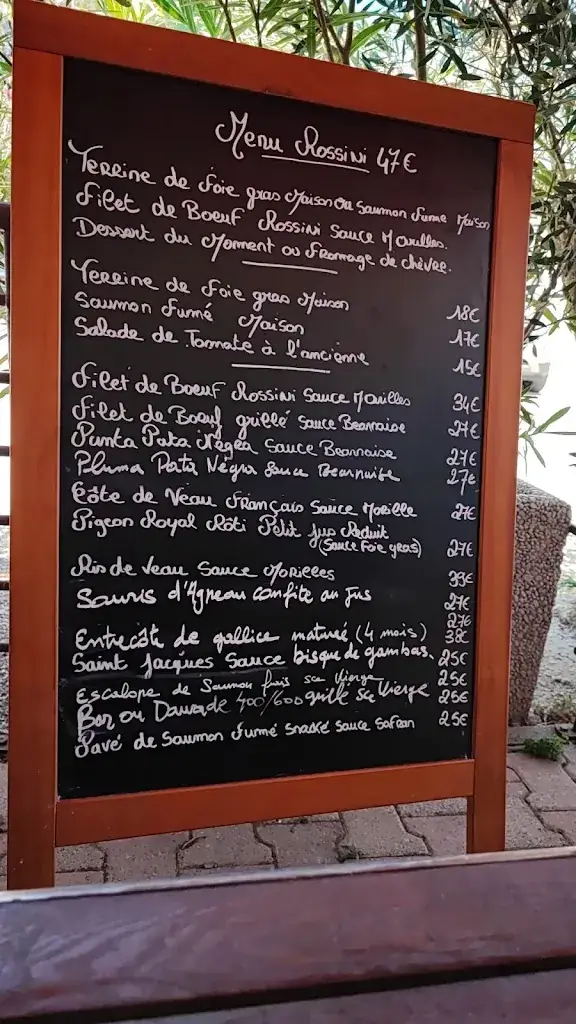 Menu Rossini 47€
Terrine de foie gras Maison ou Saumon Fumé Maison
Filet de Boeuf Rossini Sauce Morilles.
Dessert du Moment ou Fromage de chèvre.
Terrine de foie gras Maison 18€
Saumon Fumé Maison 17€
Salade de Tomate à l'ancienne 15€
Filet de Boeuf Rossini Sauce Morilles 34€
Filet de Boeuf grillé Sauce Bearnaise 27€
Punta Pata Négra Sauce Bearnaise 27€
Pluma Pata Négra Sauce Bearnaise 27€
Côte de Veau Français Sauce Morille 27€
Pigeon Royal Rôti Petit jus Réduit
(Sauce Foie gras) 27€
Ris de Veau Sauce Morilles 33€
Souris d'Agneau confite au Jus 27€
27€
Entrecôte de gallice maturé (4 mois) 38€
Saint Jacques Sauce bisque de gambas. 25€
Escalope de Saumon frais sce Vierge 25€
Bar ou Daurade 400/600 grillé Sce Vierge 26€
Pavé de Saumon Fumé snacké Sauce Safran 25€